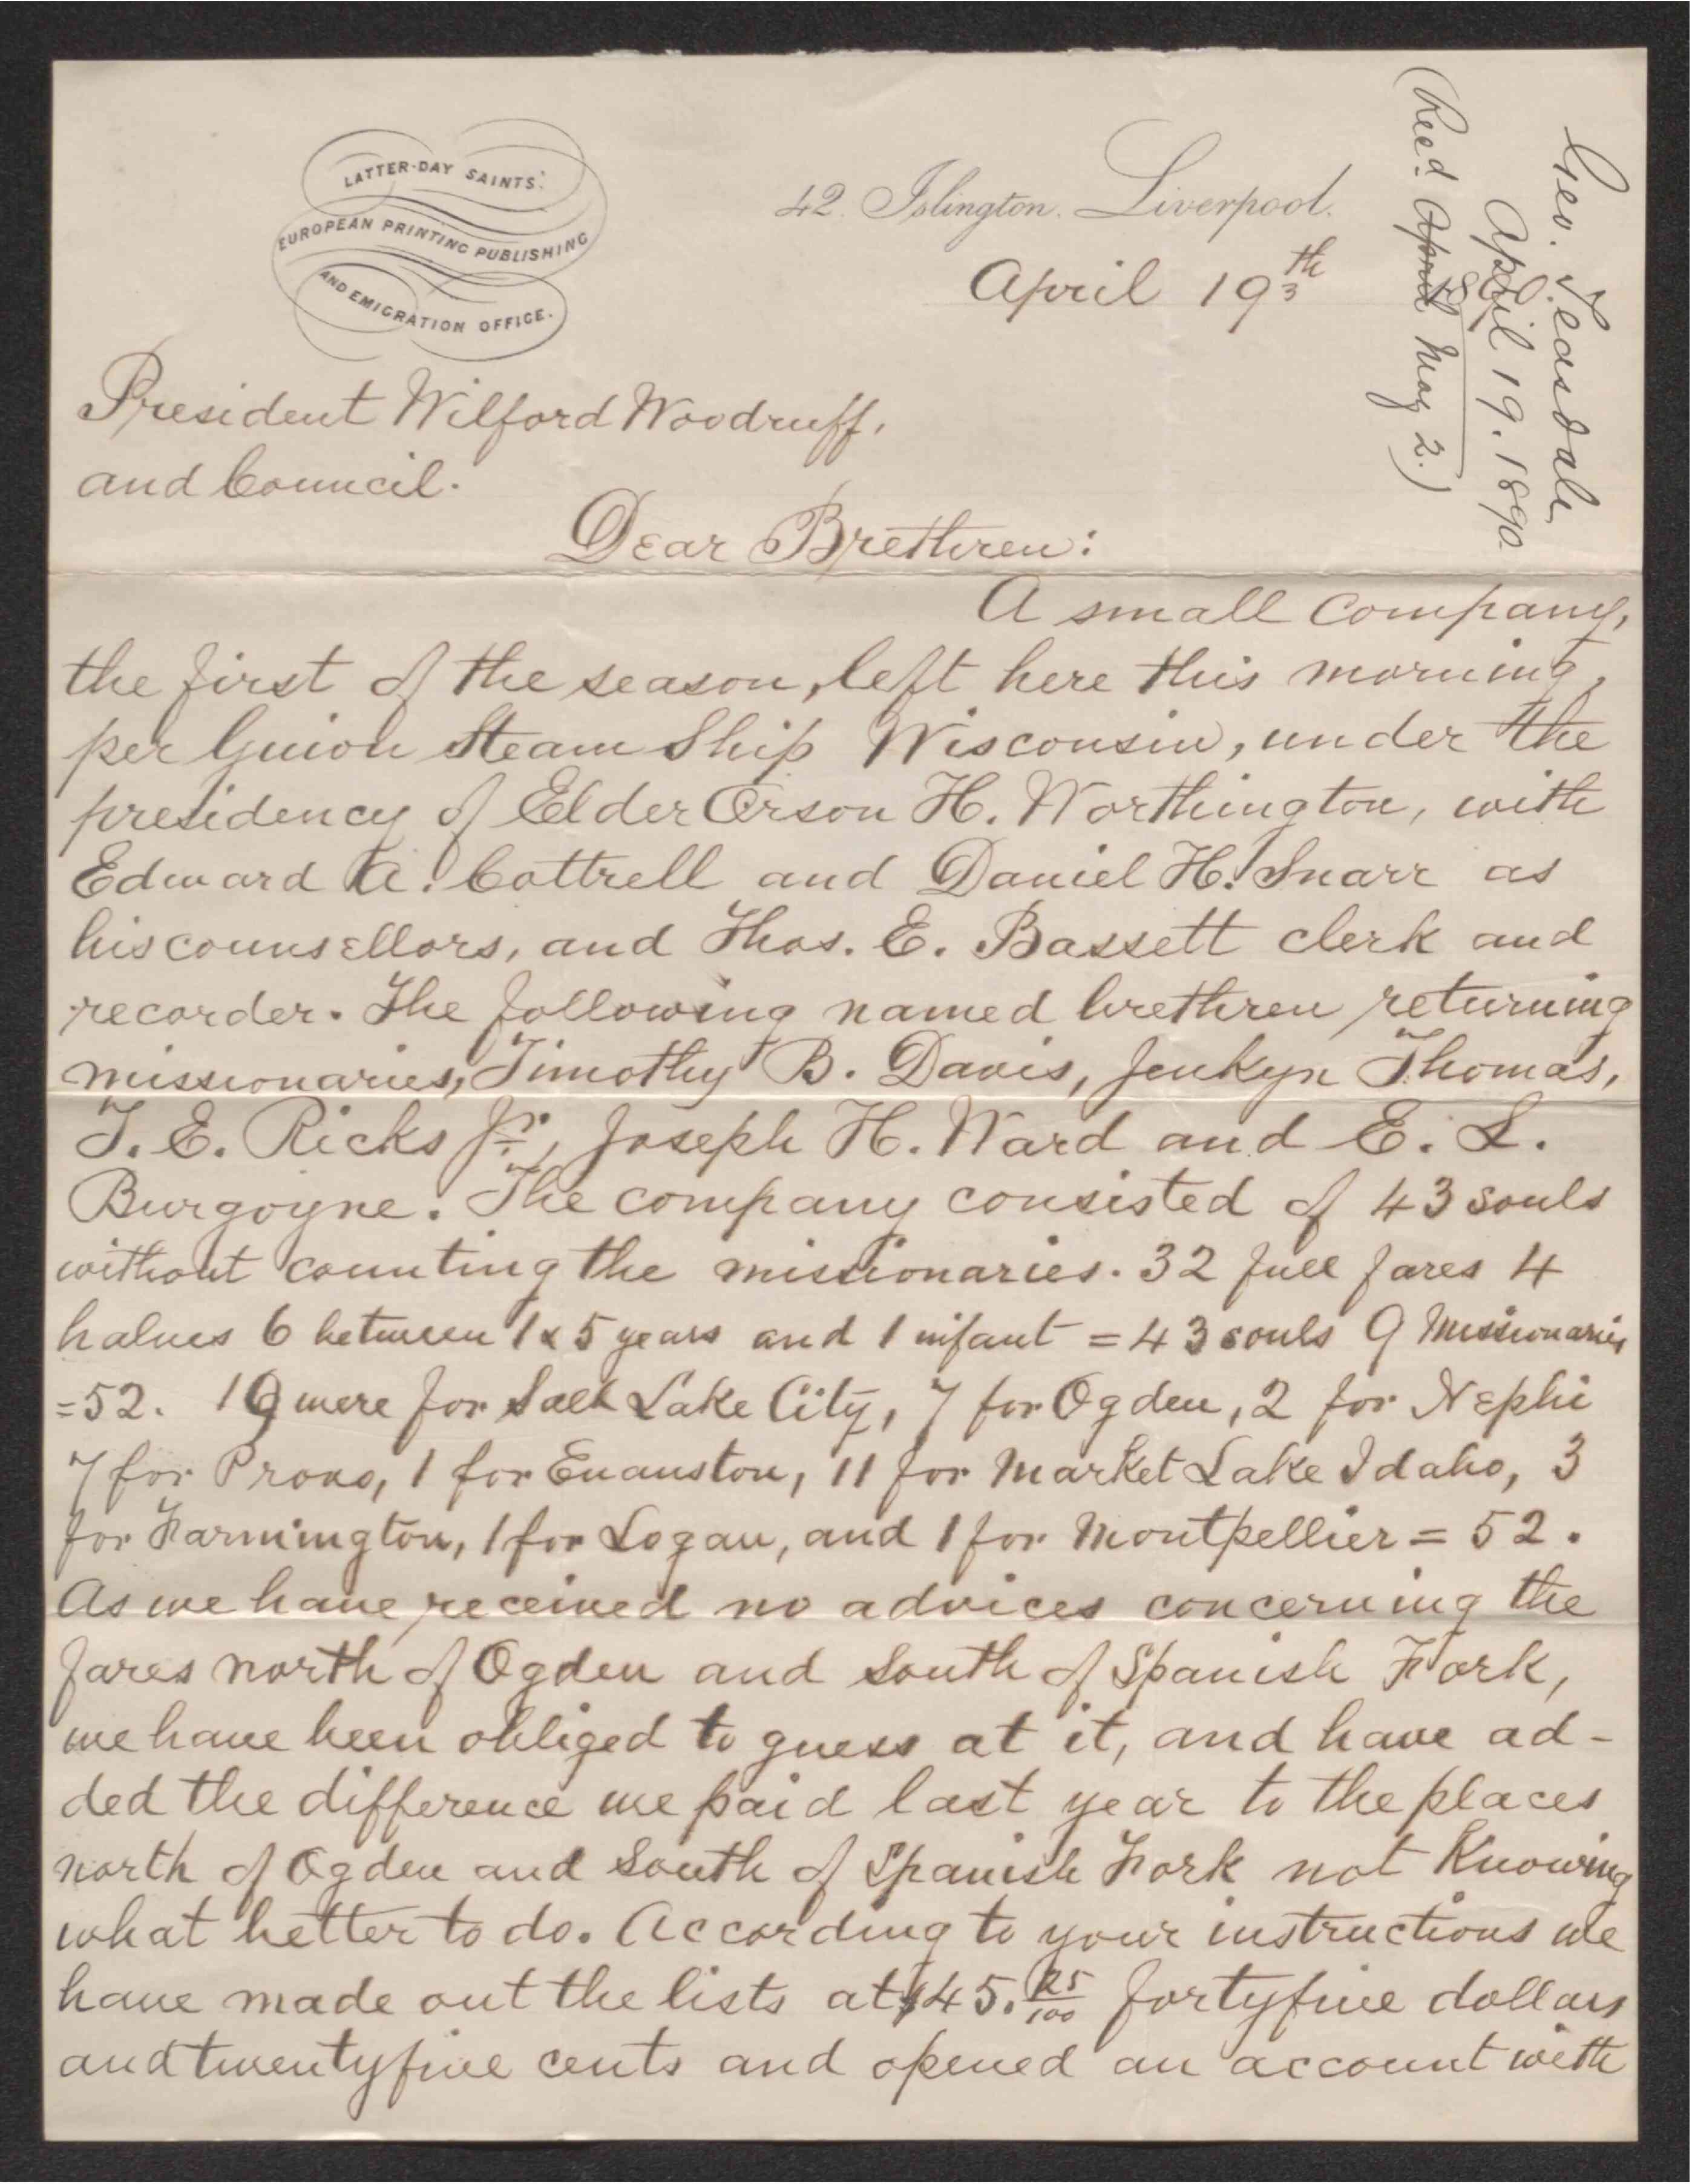 LATTER-DAY SAINTS'
EUROPEAN PRINTING PUBLISHING
AND EMIGRATION OFFICE.
42. Islington. Liverpool.
April 19th
Geo. Teasdale
April 19. 1890.
(Recd. April May 2.)
President Wilford Woodruff,
and Council.
Dear Brethren:
A small company,
the first of the season, left here this morning,
per Guion Steam Ship Wisconsin, under the
presidency of Elder Orson H. Worthington, with
Edward A. Cottrell and Daniel H. Snarr as
his counsellors, and Thos. E. Bassett clerk and
recorder. The following named brethren returning
missionaries, Timothy B. Davis, Jenkyn Thomas,
T. E. Ricks Jr., Joseph H. Ward and E. L.
Burgoyne. The company consisted of 43 souls
without counting the missionaries. 32 full fares 4
halves 6 between 1 & 5 years and 1 infant = 43 souls 9 Missionaries
=52. 19 were for Salt Lake City, 7 for Ogden, 2 for Nephi
7 for Provo, 1 for Evanston, 11 for Market Lake Idaho, 3
for Farmington, 1 for Logan, and 1 for Montpellier = 52.
As we have received no advices concerning the
fares north of Ogden and South of Spanish Fork,
we have been obliged to guess at it, and have ad-
ded the difference we paid last year to the places
north of Ogden and South of Spanish Fork not Knowing
what better to do. According to your instructions we
have made out the lists at $45.25/100 fortyfive dollars
and twentyfive cents and opened an account with